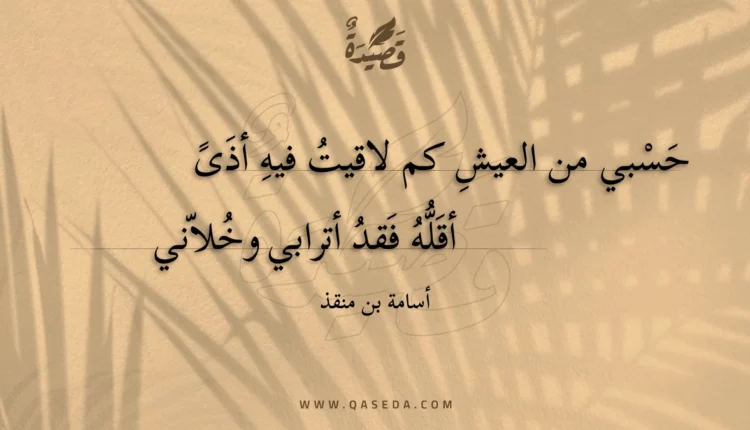 قَصِيدَةٌ
حَسْبي من العيشِ كم لاقيتُ فيهِ أذَىً
أقَلُّهُ فَقدُ أترابي وخُلاّني
أسامة بن منقذ
WWW.QASEDA.COM